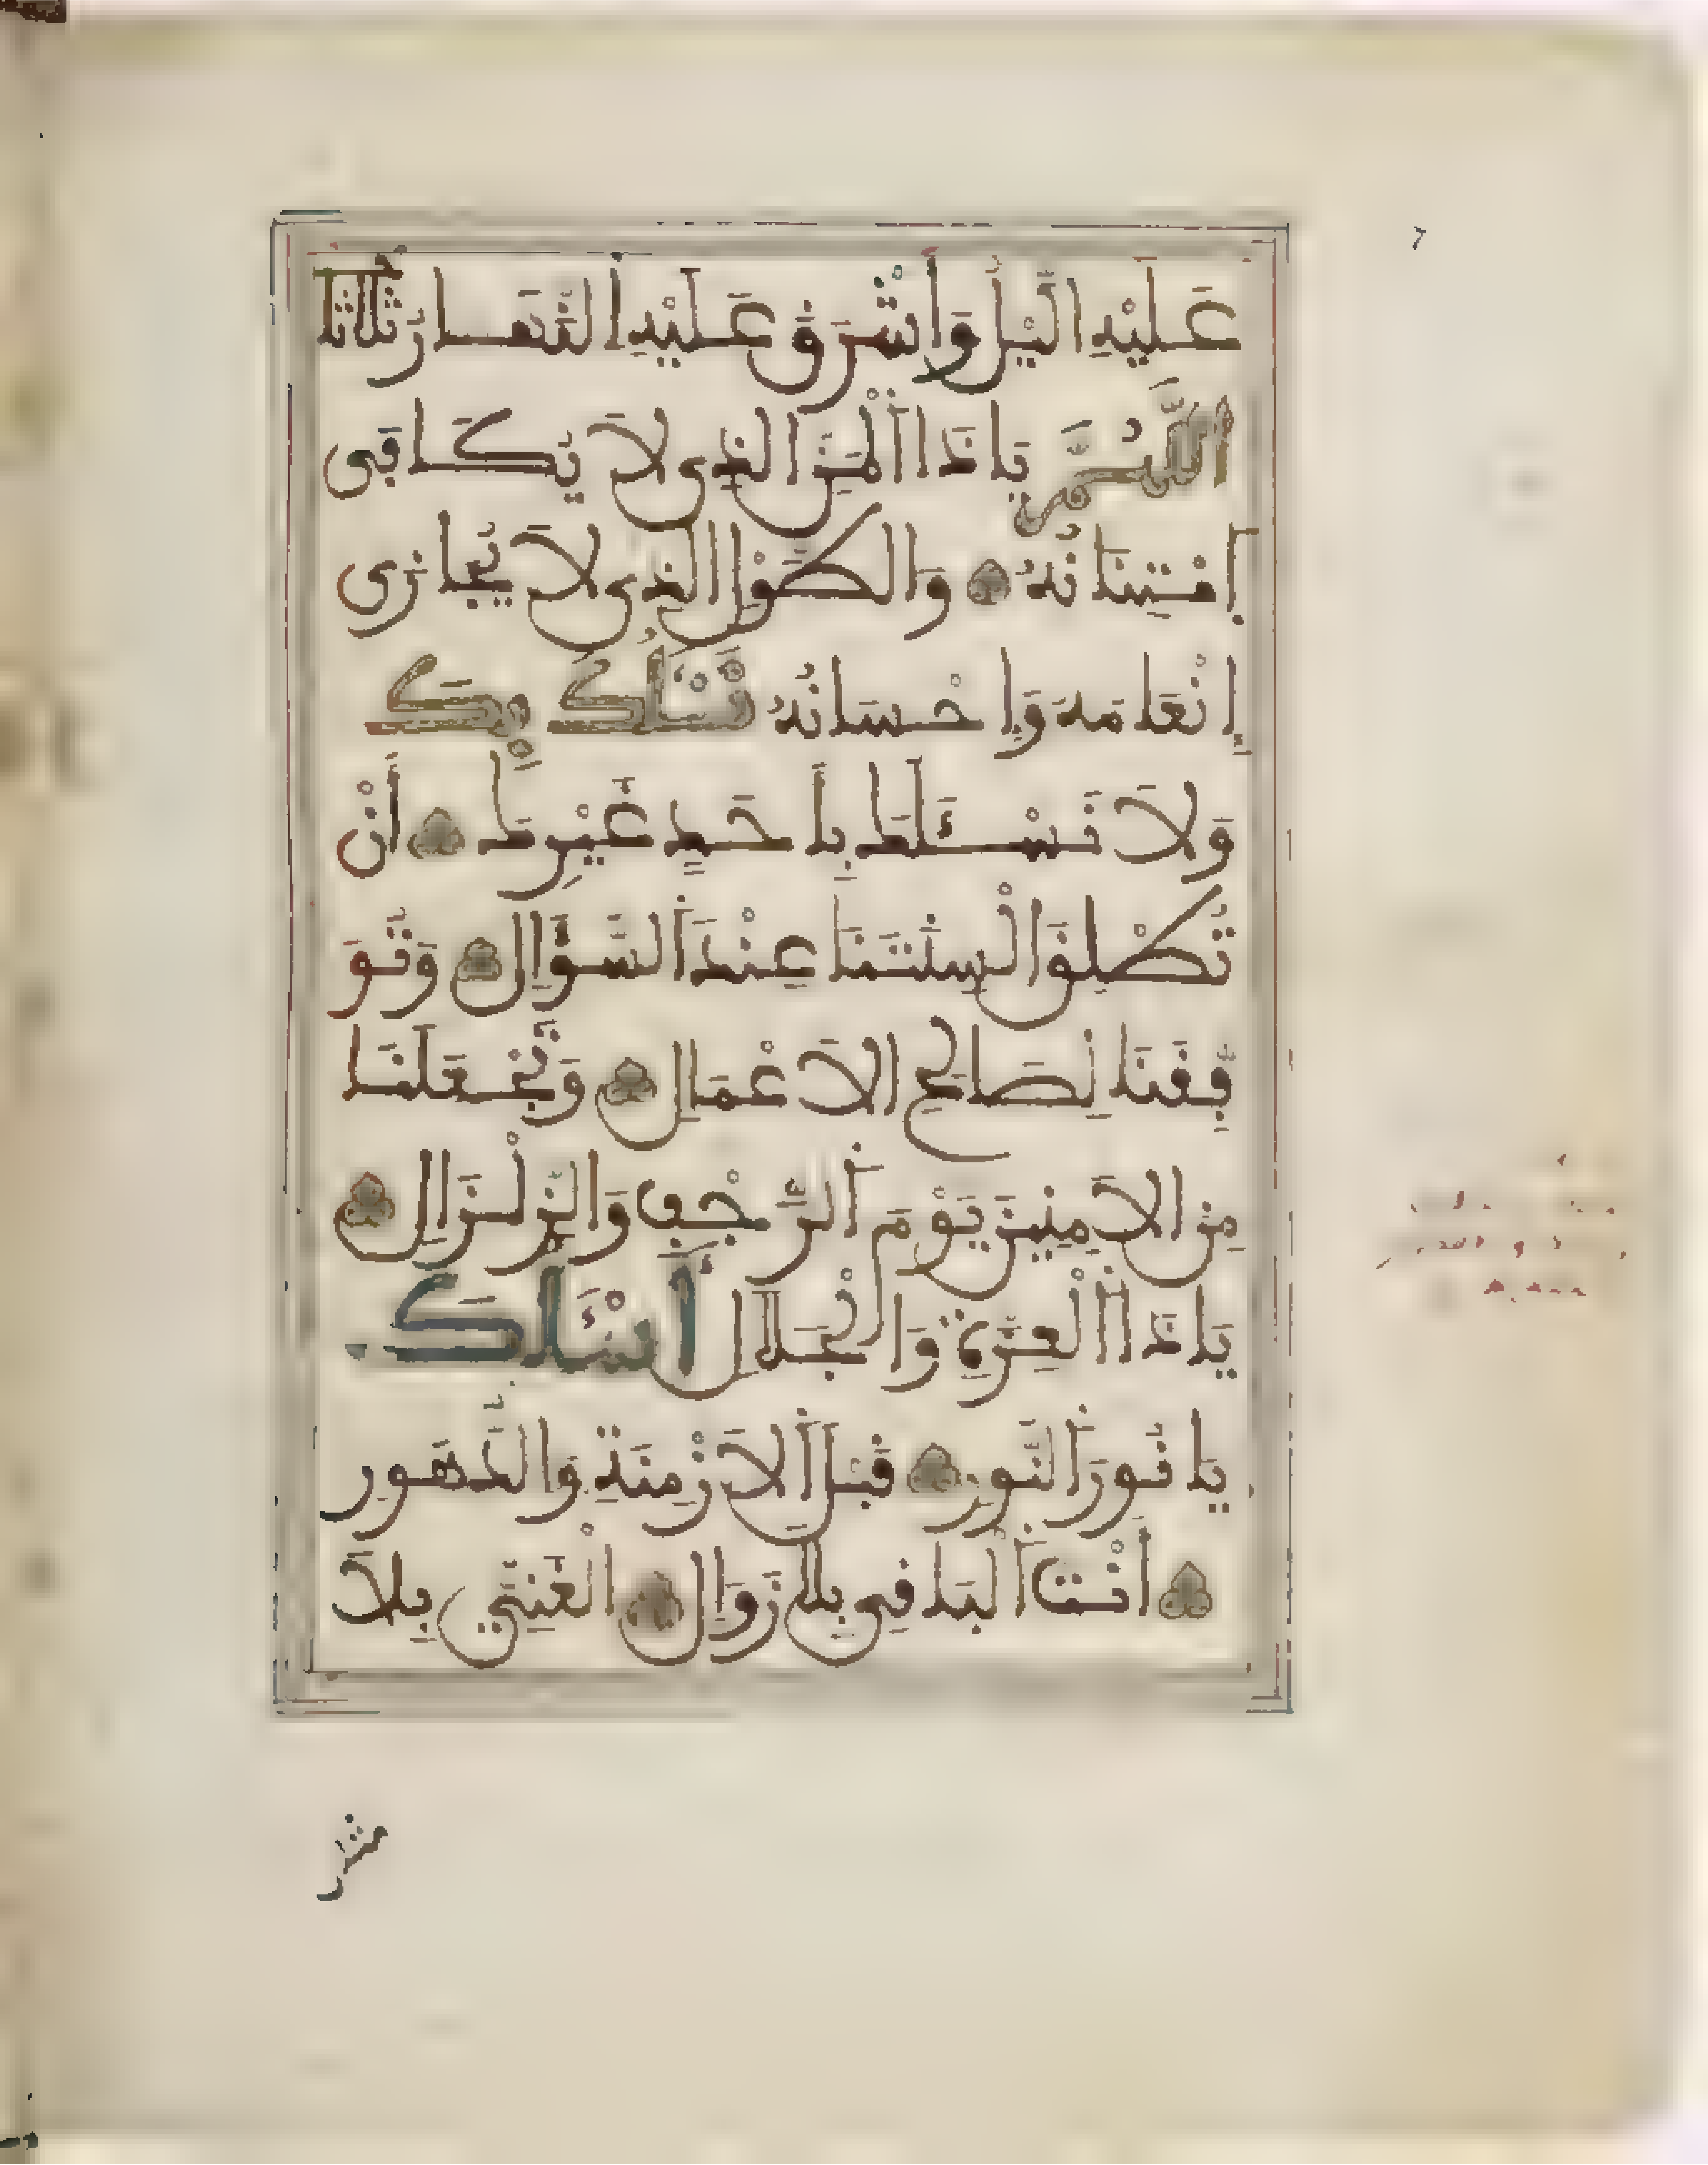 عَلَيْهِ الَّيْلُ وَأَشْرَقَ عَلَيْهِ النَّهَارُ ثَلَاثًا
اللَّهُمَّ يَا ذَا الْمَنِّ الذِي لَا يُكَافَى
إِمْتِنَانُهُ وَالطَّوْلِ الذِي لَا يُجَازَى
إِنْعَامُهُ وَإِحْسَانُهُ نَسْأَلُكَ بِكَ
وَلَا نَسْـَٔلُكَ بِأَحَدٍ غَيْرِكَ أَنْ
تُطْلِقَ أَلْسِنَتَنَا عِنْدَ السُّؤَالِ وَتُوَ
فِّقَنَا لِصَالِحِ الَاعْمَالِ وَتَجْعَلَنَا
مِنَ الَامِنِينَ يَوْمَ الرَّجْفِ وَالزِّلْزَالِ
يَا ذَا الْعِزَّةِ وَالْجَلَالِ أَسْـَٔلُكَ
يَا نُورَ النُّورِ قَبْلَ الَازْمِنَةِ وَالدُّهُورِ
أَنْتَ الْبَاقِي بِلَا زَوَالٍ الْغَنِيُّ بِلَا
مثل